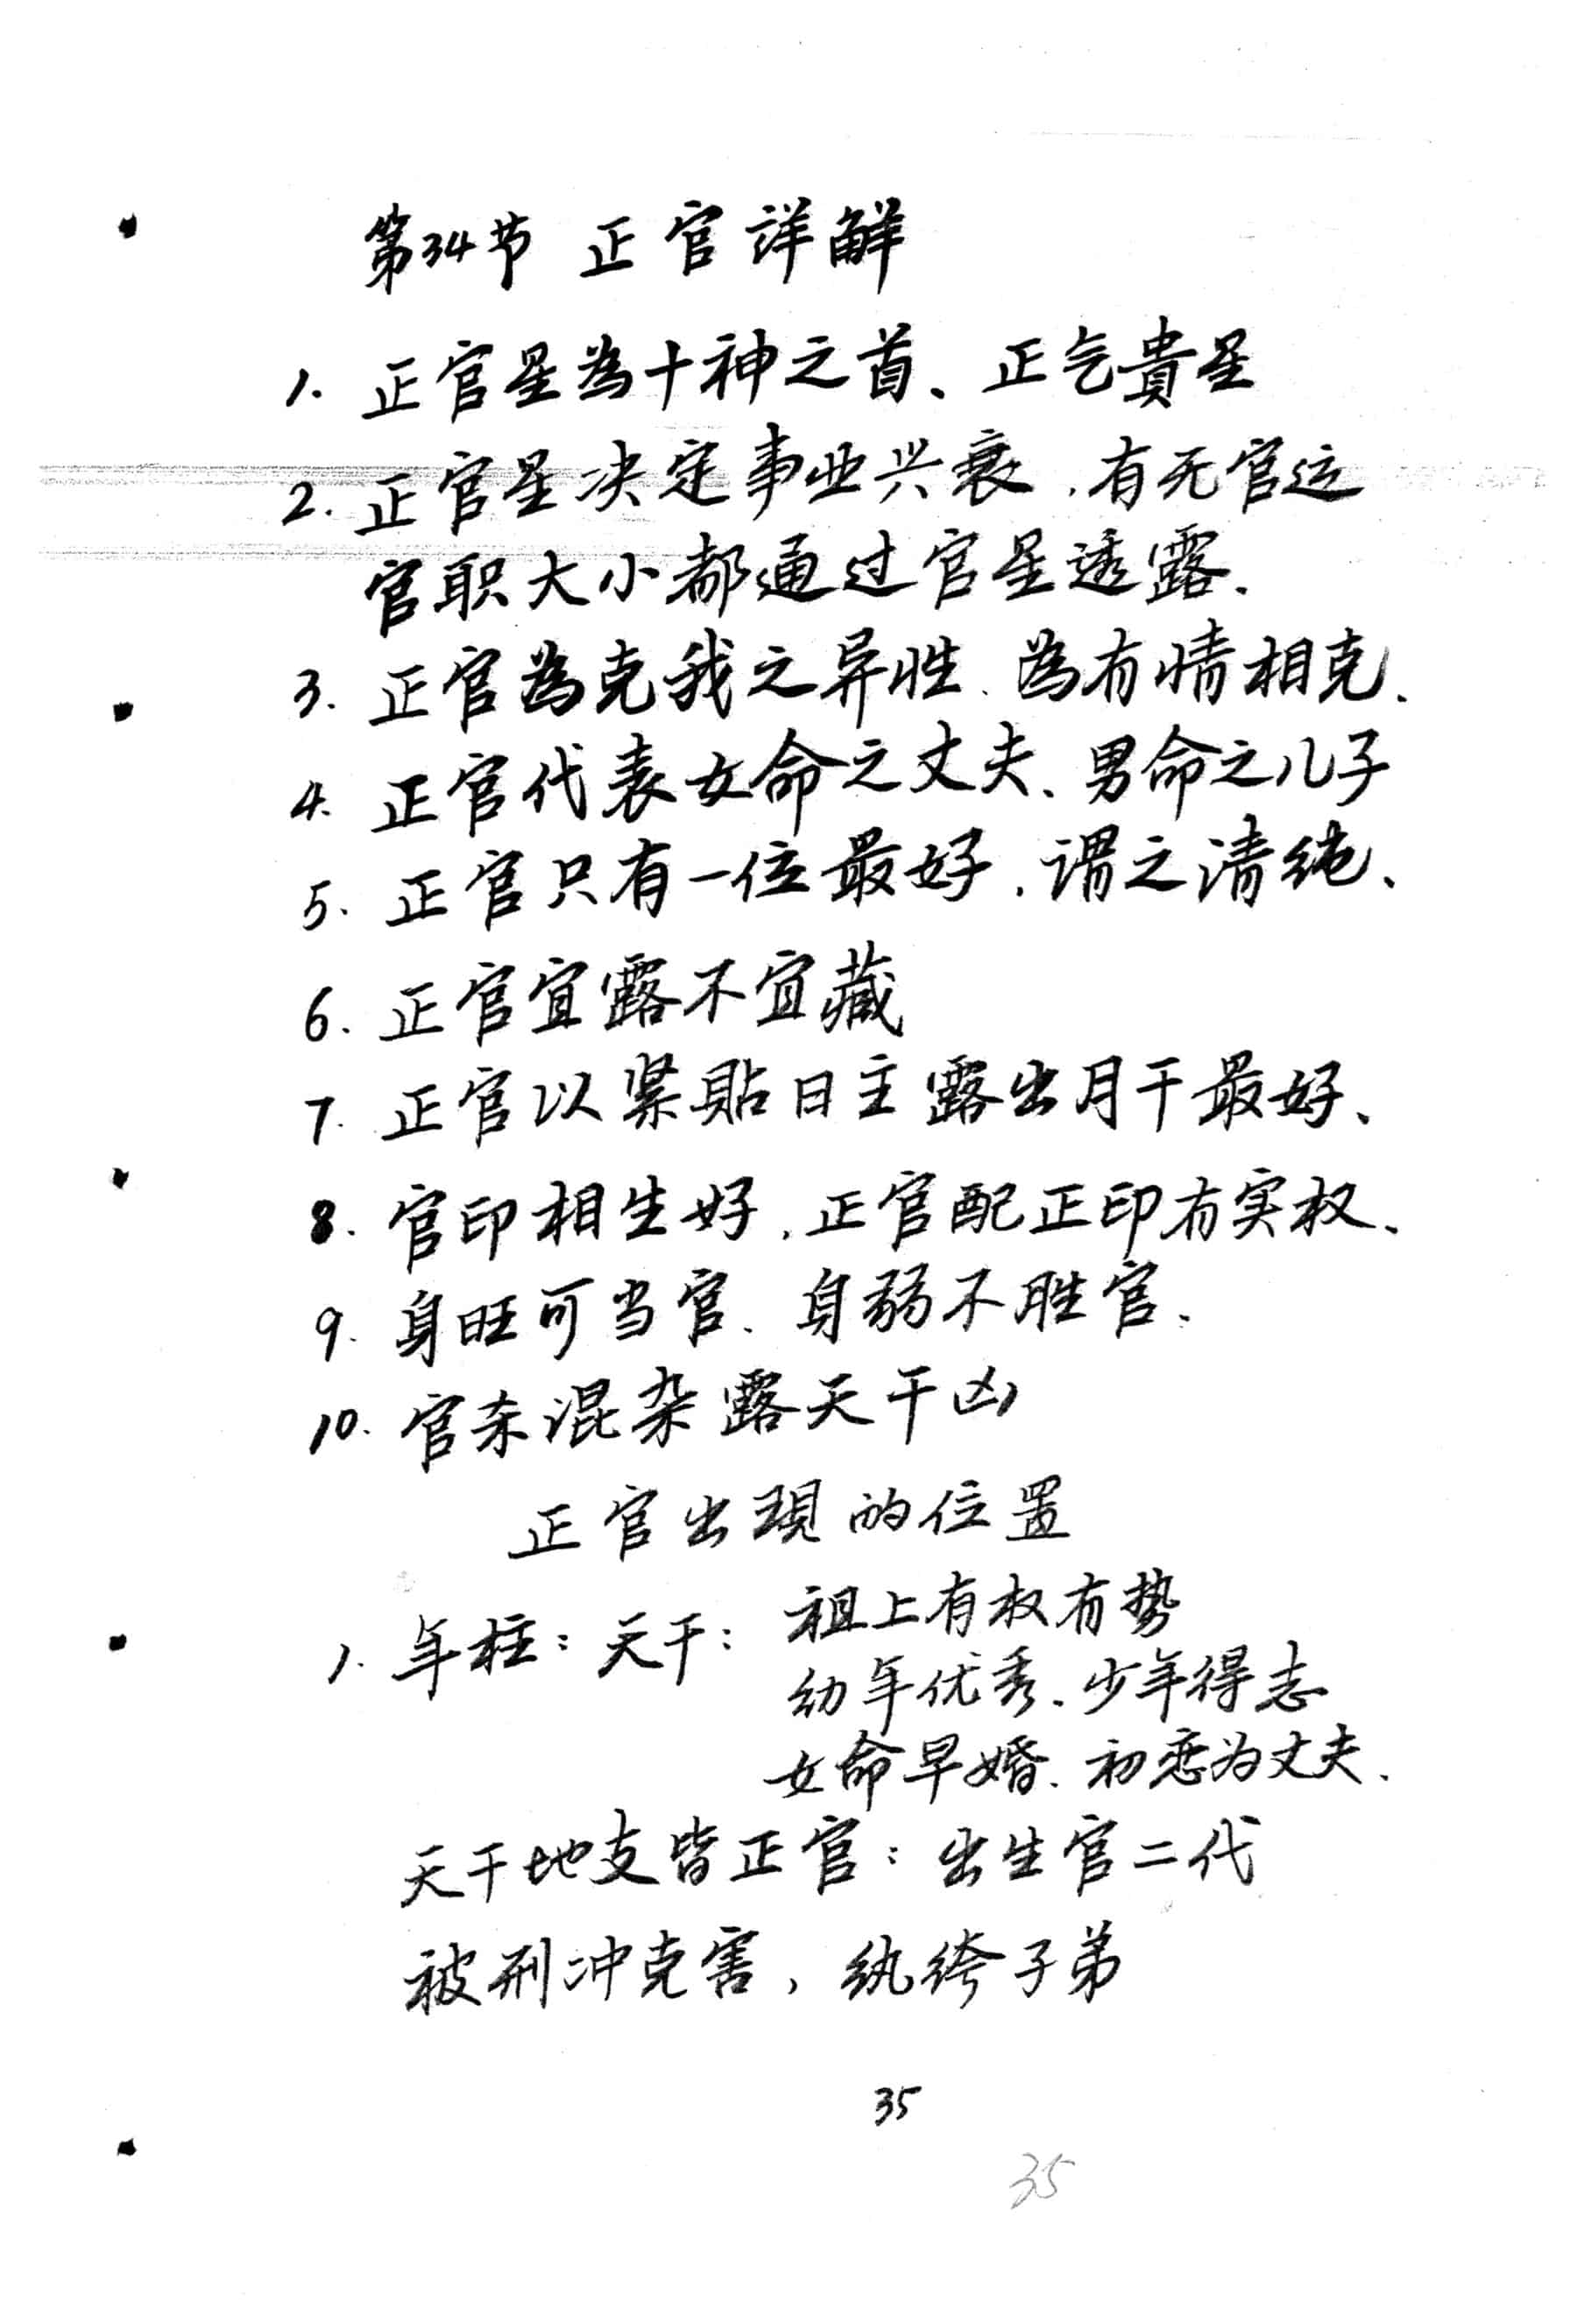 第34节 正官詳解
1. 正官星為十神之首、正气貴星
2. 正官星决定事业兴衰，有无官运
官职大小都通过官星透露．
3. 正官為克我之异性、為有情相克．
4. 正官代表女命之丈夫、男命之儿子
5. 正官只有一位最好．谓之清纯、
6. 正官宜露不宜藏
7. 正官以紧貼日主露出月干最好、
8. 官印相生好．正官配正印有实权、
9. 身旺可当官、身弱不胜官．
10. 官杀混杂露天干凶
正官出現的位置
1. 年柱：天干：祖上有权有势
幼年优秀、少年得志
女命早婚、初恋为丈夫．
天干地支皆正官：出生官二代
被刑冲克害，纨绔子弟
35
35